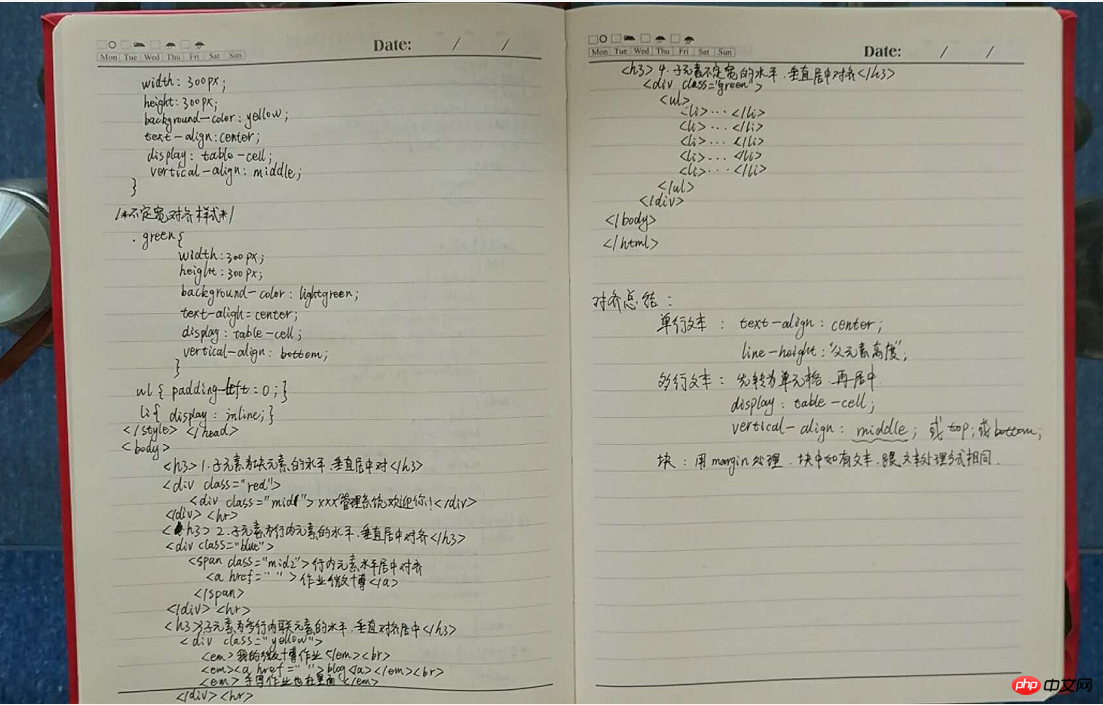 Date: / /
Mon Tue Wed Thu Fri Sat Sun
width: 300px;
height: 300px;
background-color: yellow;
text-align: center;
display: table-cell;
vertical-align: middle;
}
/*不定宽对齐样式*/
.green{
width: 300px;
height: 300px;
background-color: lightgreen;
text-align=center;
display: table-cell;
vertical-align: bottom;
}
ul{ padding-left: 0;}
li{ display: inline;}
</style> </head>
<body>
<h3>1.子元素为块元素的水平.垂直居中对</h3>
<div class="red">
<div class="mid1">xxx管理系统欢迎你!</div>
</div> <hr>
<h3> 2.子元素为行内元素的水平.垂直居中对齐</h3>
<div class="blue">
<span class="mid2">行内元素水平居中对齐
<a href=" ">作业微博</a>
</span>
</div> <hr>
<h3>3子元素为多行内联元素的水平.垂直对齐居中</h3>
<div class="yellow">
<em>我的微博作业</em><br>
<em><a href=" ">blog</a></em><br>
<em>手写作业也在里面</em>
</div><hr>
Date: / /
Mon Tue Wed Thu Fri Sat Sun
<h3>4.子元素不定宽的水平.垂直居中对齐</h3>
<div class="green">
<ul>
<li>...</li>
<li>...</li>
<li>...</li>
<li>...</li>
<li>...</li>
</ul>
</div>
</body>
</html>
对齐总结:
单行文本: text-align: center;
line-height:"父元素高度";
多行文本: 先转为单元格.再居中.
display: table-cell;
vertical-align: middle; 或top;或bottom;
块:用margin处理.块中如有文本.跟文本处理方式相同.
php 中文网